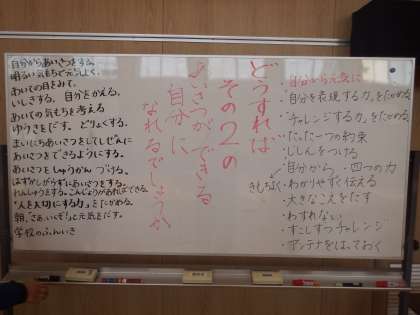 どうすれば
その2の
あいさつができる
自分に
なれるでしょうか
自分から元気に
・「自分を表現する力」をたかめる
・「チャレンジする力」をたかめる
・たった一つの約束
・じしんをつける
・自分から 四つの力
きしちなく
・わかりやすく伝える
・大きなこえをだす
・わすれない
・すこしずつチャレンジ
・アンテナをはっておく
自分からあいさつをする。
明るい気もちで元気よく。
あいての目をみて。
いしきする。自分をかえる。
あいての気もちを考える
ゆうきをだす。どりょくする。
まいにちあいさつをしてしぜんに
あいさつをできるようにする。
あいさつをしゅうかんづける。
はずかしがらずにあいさつをする。
れんしゅうをする。こんじょうがあればできる。
"人を大切にする力"をたかめる。
朝、「さぁ、いくぞ!」と元気をだす。
学校のふんいき